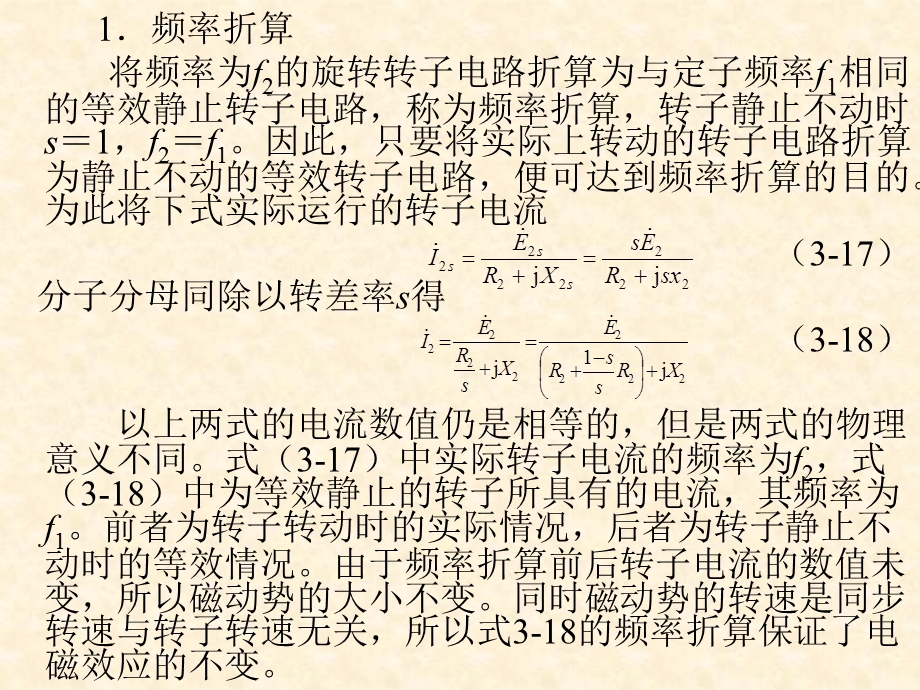 1．频率折算
将频率为f₂的旋转转子电路折算为与定子频率f₁相同
的等效静止转子电路，称为频率折算，转子静止不动时
s＝1，f₂＝f₁。因此，只要将实际上转动的转子电路折算
为静止不动的等效转子电路，便可达到频率折算的目的。
为此将下式实际运行的转子电流
İ₂ₛ = Ė₂ₛ / (R₂ + jX₂ₛ) = sĖ₂ / (R₂ + jsx₂) （3-17）
分子分母同除以转差率s得
İ₂ = Ė₂ / (R₂/s + jX₂) = Ė₂ / ((R₂ + (1−s)/s R₂) + jX₂) （3-18）
以上两式的电流数值仍是相等的，但是两式的物理
意义不同。式（3-17）中实际转子电流的频率为f₂，式
（3-18）中为等效静止的转子所具有的电流，其频率为
f₁。前者为转子转动时的实际情况，后者为转子静止不
动时的等效情况。由于频率折算前后转子电流的数值未
变，所以磁动势的大小不变。同时磁动势的转速是同步
转速与转子转速无关，所以式3-18的频率折算保证了电
磁效应的不变。